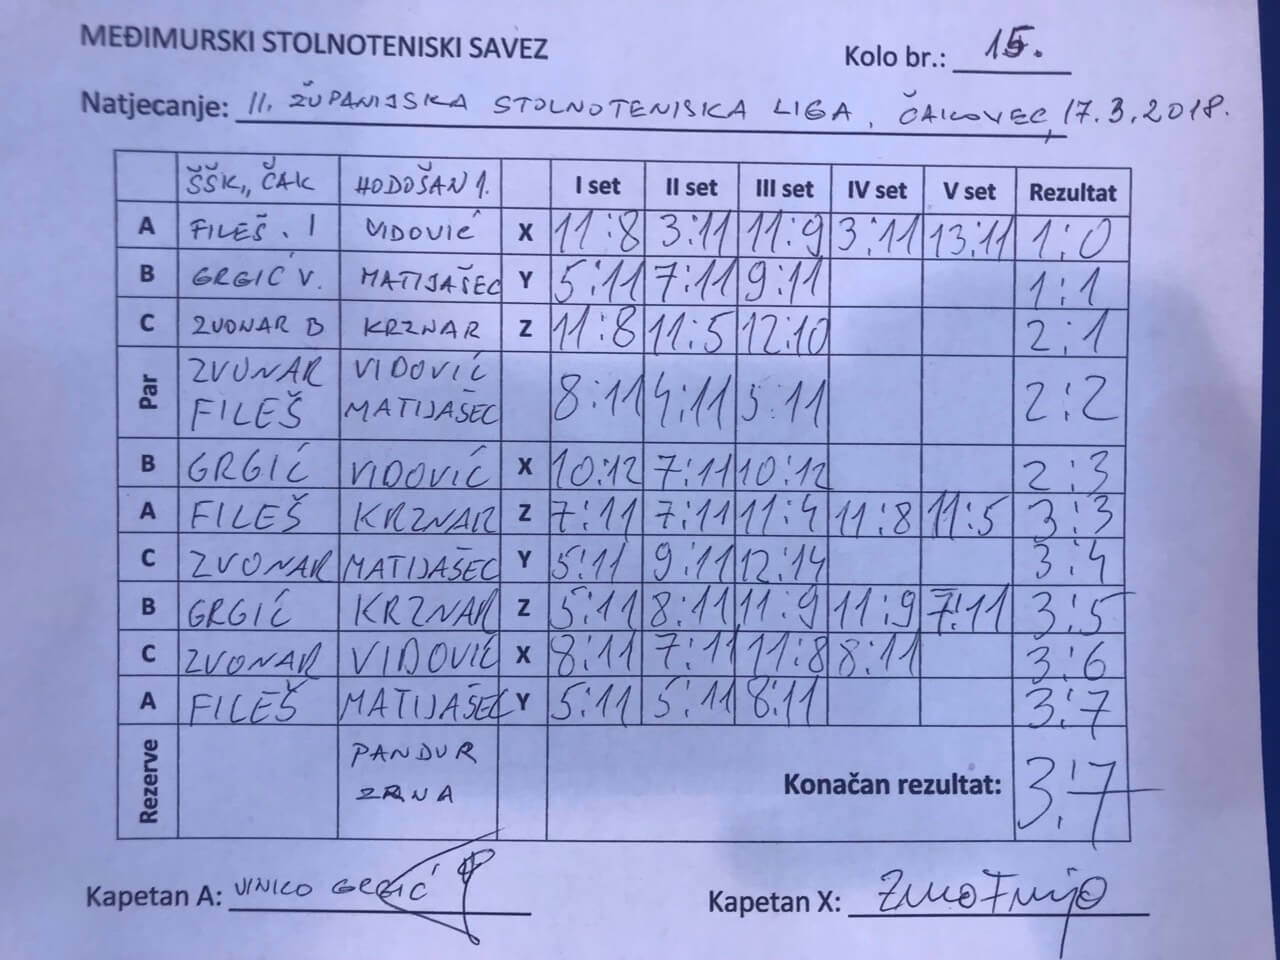 MEĐIMURSKI STOLNOTENISKI SAVEZ
Kolo br.: 15.
Natjecanje: II. ŽUPANIJSKA STOLNOTENISKA LIGA, ČAKOVEC, 17.3.2018.
ŠŠK,, ČAK HODOŠAN 1. I set II set III set IV set V set Rezultat
A FILEŠ . I VIDOVIĆ X 11:8 3:11 11:9 3:11 13:11 1:0
B GRGIĆ V. MATIJAŠEC Y 5:11 7:11 9:11 1:1
C ZVONAR B KRZNAR Z 11:8 11:5 12:10 2:1
Par ZVONAR VIDOVIĆ
FILEŠ MATIJAŠEC 8:11 4:11 5:11 2:2
B GRGIĆ VIDOVIĆ X 10:12 7:11 10:12 2:3
A FILEŠ KRZNAR Z 7:11 7:11 11:4 11:8 11:5 3:3
C ZVONAR MATIJAŠEC Y 5:11 9:11 12:14 3:4
B GRGIĆ KRZNAR Z 5:11 8:11 11:9 11:9 7:11 3:5
C ZVONAR VIDOVIĆ X 8:11 7:11 11:8 8:11 3:6
A FILEŠ MATIJAŠEC Y 5:11 5:11 8:11 3:7
Rezerve PANDUR
ZRNA Konačan rezultat: 3:7
Kapetan A: VINKO GRGIĆ
Kapetan X: